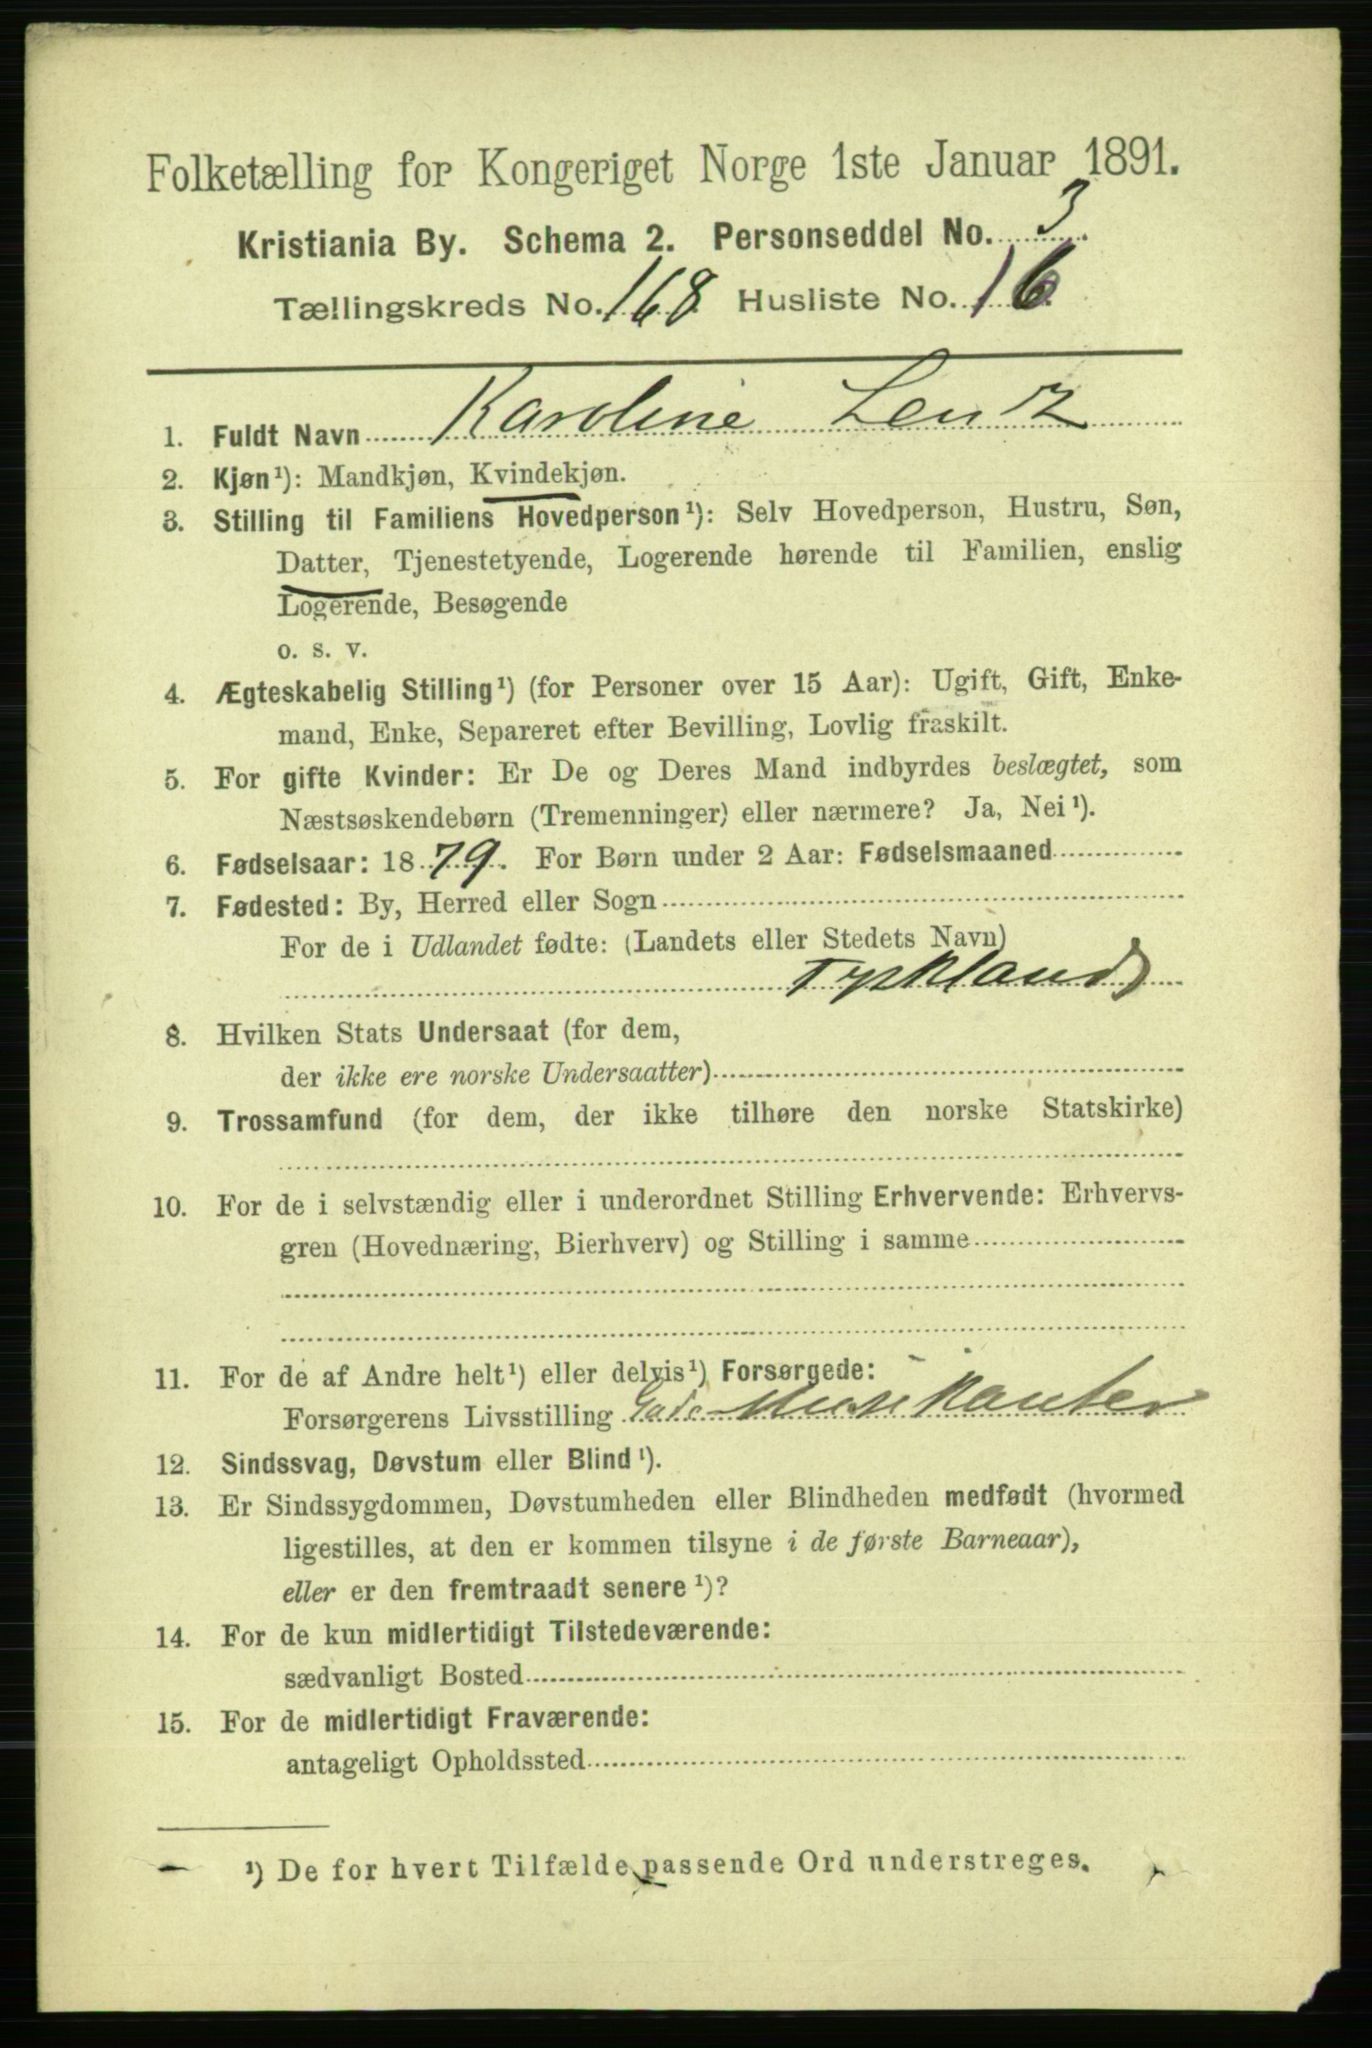 Folketælling for Kongeriget Norge 1ste Januar 1891.
Kristiania By. Schema 2. Personseddel No. 3
Tællingskreds No. 168 Husliste No. 16
1. Fuldt Navn Karoline Lentz
2. Kjøn¹): Mandkjøn, Kvindekjøn.
3. Stilling til Familiens Hovedperson¹): Selv Hovedperson, Hustru, Søn,
Datter, Tjenestetyende, Logerende hørende til Familien, enslig
Logerende, Besøgende
o. s. v.
4. Ægteskabelig Stilling¹) (for Personer over 15 Aar): Ugift, Gift, Enke-
mand, Enke, Separeret efter Bevilling, Lovlig fraskilt.
5. For gifte Kvinder: Er De og Deres Mand indbyrdes beslægtet, som
Næstsøskendebørn (Tremenninger) eller nærmere? Ja, Nei¹).
6. Fødselsaar: 1879. For Børn under 2 Aar: Fødselsmaaned
7. Fødested: By, Herred eller Sogn
For de i Udlandet fødte: (Landets eller Stedets Navn)
Tyskland
8. Hvilken Stats Undersaat (for dem,
der ikke ere norske Undersaatter)
9. Trossamfund (for dem, der ikke tilhøre den norske Statskirke)
10. For de i selvstændig eller i underordnet Stilling Erhvervende: Erhvervs-
gren (Hovednæring, Bierhverv) og Stilling i samme
11. For de af Andre helt¹) eller delvis¹) Forsørgede:
Forsørgerens Livsstilling Gade Musikanter
12. Sindssvag, Døvstum eller Blind¹).
13. Er Sindssygdommen, Døvstumheden eller Blindheden medfødt (hvormed
ligestilles, at den er kommen tilsyne i de første Barneaar),
eller er den fremtraadt senere¹)?
14. For de kun midlertidigt Tilstedeværende:
sædvanligt Bosted
15. For de midlertidigt Fraværende:
antageligt Opholdssted
¹) De for hvert Tilfælde passende Ord understreges.